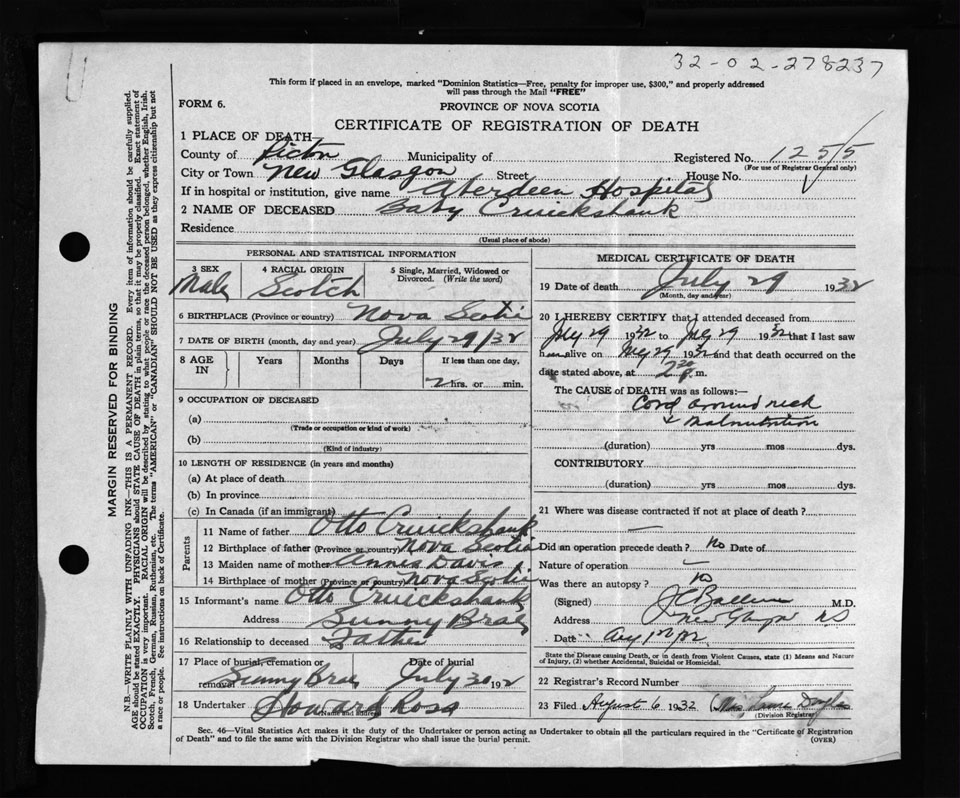 32-02-278237
This form if placed in an envelope, marked "Dominion Statistics—Free, penalty for improper use, $300," and properly addressed
will pass through the Mail "FREE"
FORM 6.
PROVINCE OF NOVA SCOTIA
CERTIFICATE OF REGISTRATION OF DEATH
MARGIN RESERVED FOR BINDING
N.B.—WRITE PLAINLY WITH UNFADING INK—THIS IS A PERMANENT RECORD. Every item of information should be carefully supplied.
AGE should be stated EXACTLY. PHYSICIANS should STATE CAUSE OF DEATH in plain terms, so that it may be properly classified. Exact statement of
OCCUPATION is very important. RACIAL ORIGIN will be described by stating to what people or race the deceased person belonged, whether English, Irish,
Scotch, French, German, Russian, Ruthenian, etc. The terms "AMERICAN" or "CANADIAN" SHOULD NOT BE USED as they express citizenship but not
a race or people. See instructions on back of Certificate.
1 PLACE OF DEATH
County of Pictou Municipality of Registered No. 1255
(For use of Registrar General only)
City or Town New Glasgow Street House No.
If in hospital or institution, give name Aberdeen Hospital
2 NAME OF DECEASED Baby Cruickshank
Residence
(Usual place of abode)
PERSONAL AND STATISTICAL INFORMATION
3 SEX 4 RACIAL ORIGIN 5 Single, Married, Widowed or
Divorced. (Write the word)
Male Scotch
6 BIRTHPLACE (Province or country) Nova Scotia
7 DATE OF BIRTH (month, day and year) July 29/32
8 AGE IN Years Months Days If less than one day,
2 hrs. or min.
9 OCCUPATION OF DECEASED
(a)
(Trade or occupation or kind of work)
(b)
(Kind of industry)
10 LENGTH OF RESIDENCE (in years and months)
(a) At place of death
(b) In province
(c) In Canada (if an immigrant)
Parents
11 Name of father Otto Cruickshank
12 Birthplace of father (Province or country) Nova Scotia
13 Maiden name of mother Annie Davis
14 Birthplace of mother (Province or country) Nova Scotia
15 Informant's name Otto Cruickshank
Address Sunny Brae
16 Relationship to deceased Father
17 Place of burial, cremation or removal Sunny Brae Date of burial July 30 192
18 Undertaker Howard Ross
(Name and address)
MEDICAL CERTIFICATE OF DEATH
19 Date of death July 29 1932
(Month, day and year)
20 I HEREBY CERTIFY that I attended deceased from
July 29 1932 to July 29 1932 that I last saw
h alive on July 29 1932 and that death occurred on the
date stated above, at 2 30 P. m.
The CAUSE OF DEATH was as follows:—
Cord around neck
& Malnutrition
(duration) yrs mos dys.
CONTRIBUTORY
(duration) yrs mos dys.
21 Where was disease contracted if not at place of death?
Did an operation precede death? no Date of
Nature of operation
Was there an autopsy? no
(Signed) M.D.
Address New Glasgow NS
Date
State the Disease causing Death, or in death from Violent Causes, state (1) Means and Nature
of Injury, (2) whether Accidental, Suicidal or Homicidal.
22 Registrar's Record Number
23 Filed August 6 1932
(Division Registrar)
Sec. 46—Vital Statistics Act makes it the duty of the Undertaker or person acting as Undertaker to obtain all the particulars required in the "Certificate of Registration
of Death" and to file the same with the Division Registrar who shall issue the burial permit.
(OVER)